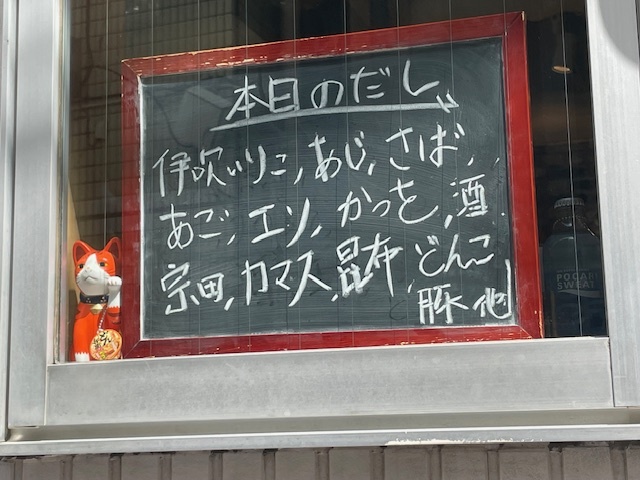 本日のだし
伊吹いりこ、あじ、さば、
あご、エソ、かつを、酒、
宗田、カマス、昆布、どんこ
豚 他
POCARI
SWEAT